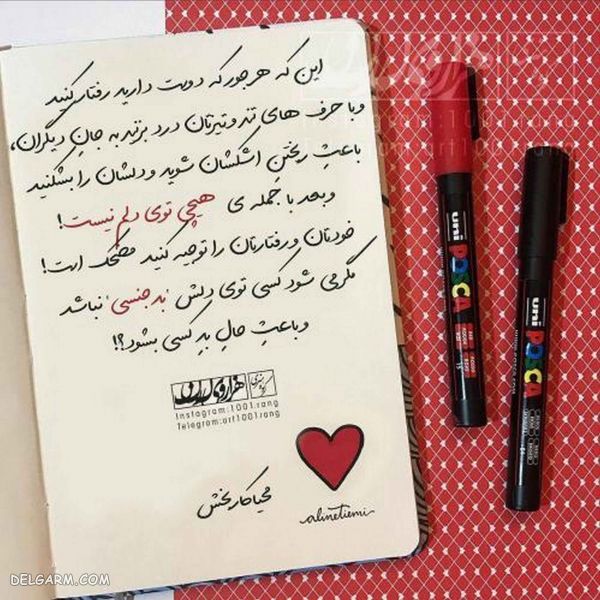 این که هر جور که دوست دارید رفتار کنید
و با حرف های تند و تیزتان درد بزنید به جانِ دیگران،
باعثِ ریختنِ اشکشان شوید و دلشان را بشکنید
و بعد با جمله ی هیچی توی دلم نیست!
خودتان و رفتارتان را توجیه کنید مضحک است!
مگر می شود کسی توی دلش 'بد جنسی' نباشد
و باعثِ حالِ بدِ کسی بشود؟!
هزار و یک رنگ
instagram:1001.rang
Telegram:art1001.rang
محیا کاربخش
alinetiemi
uni POSCA
uni POSCA
DELGARM.COM